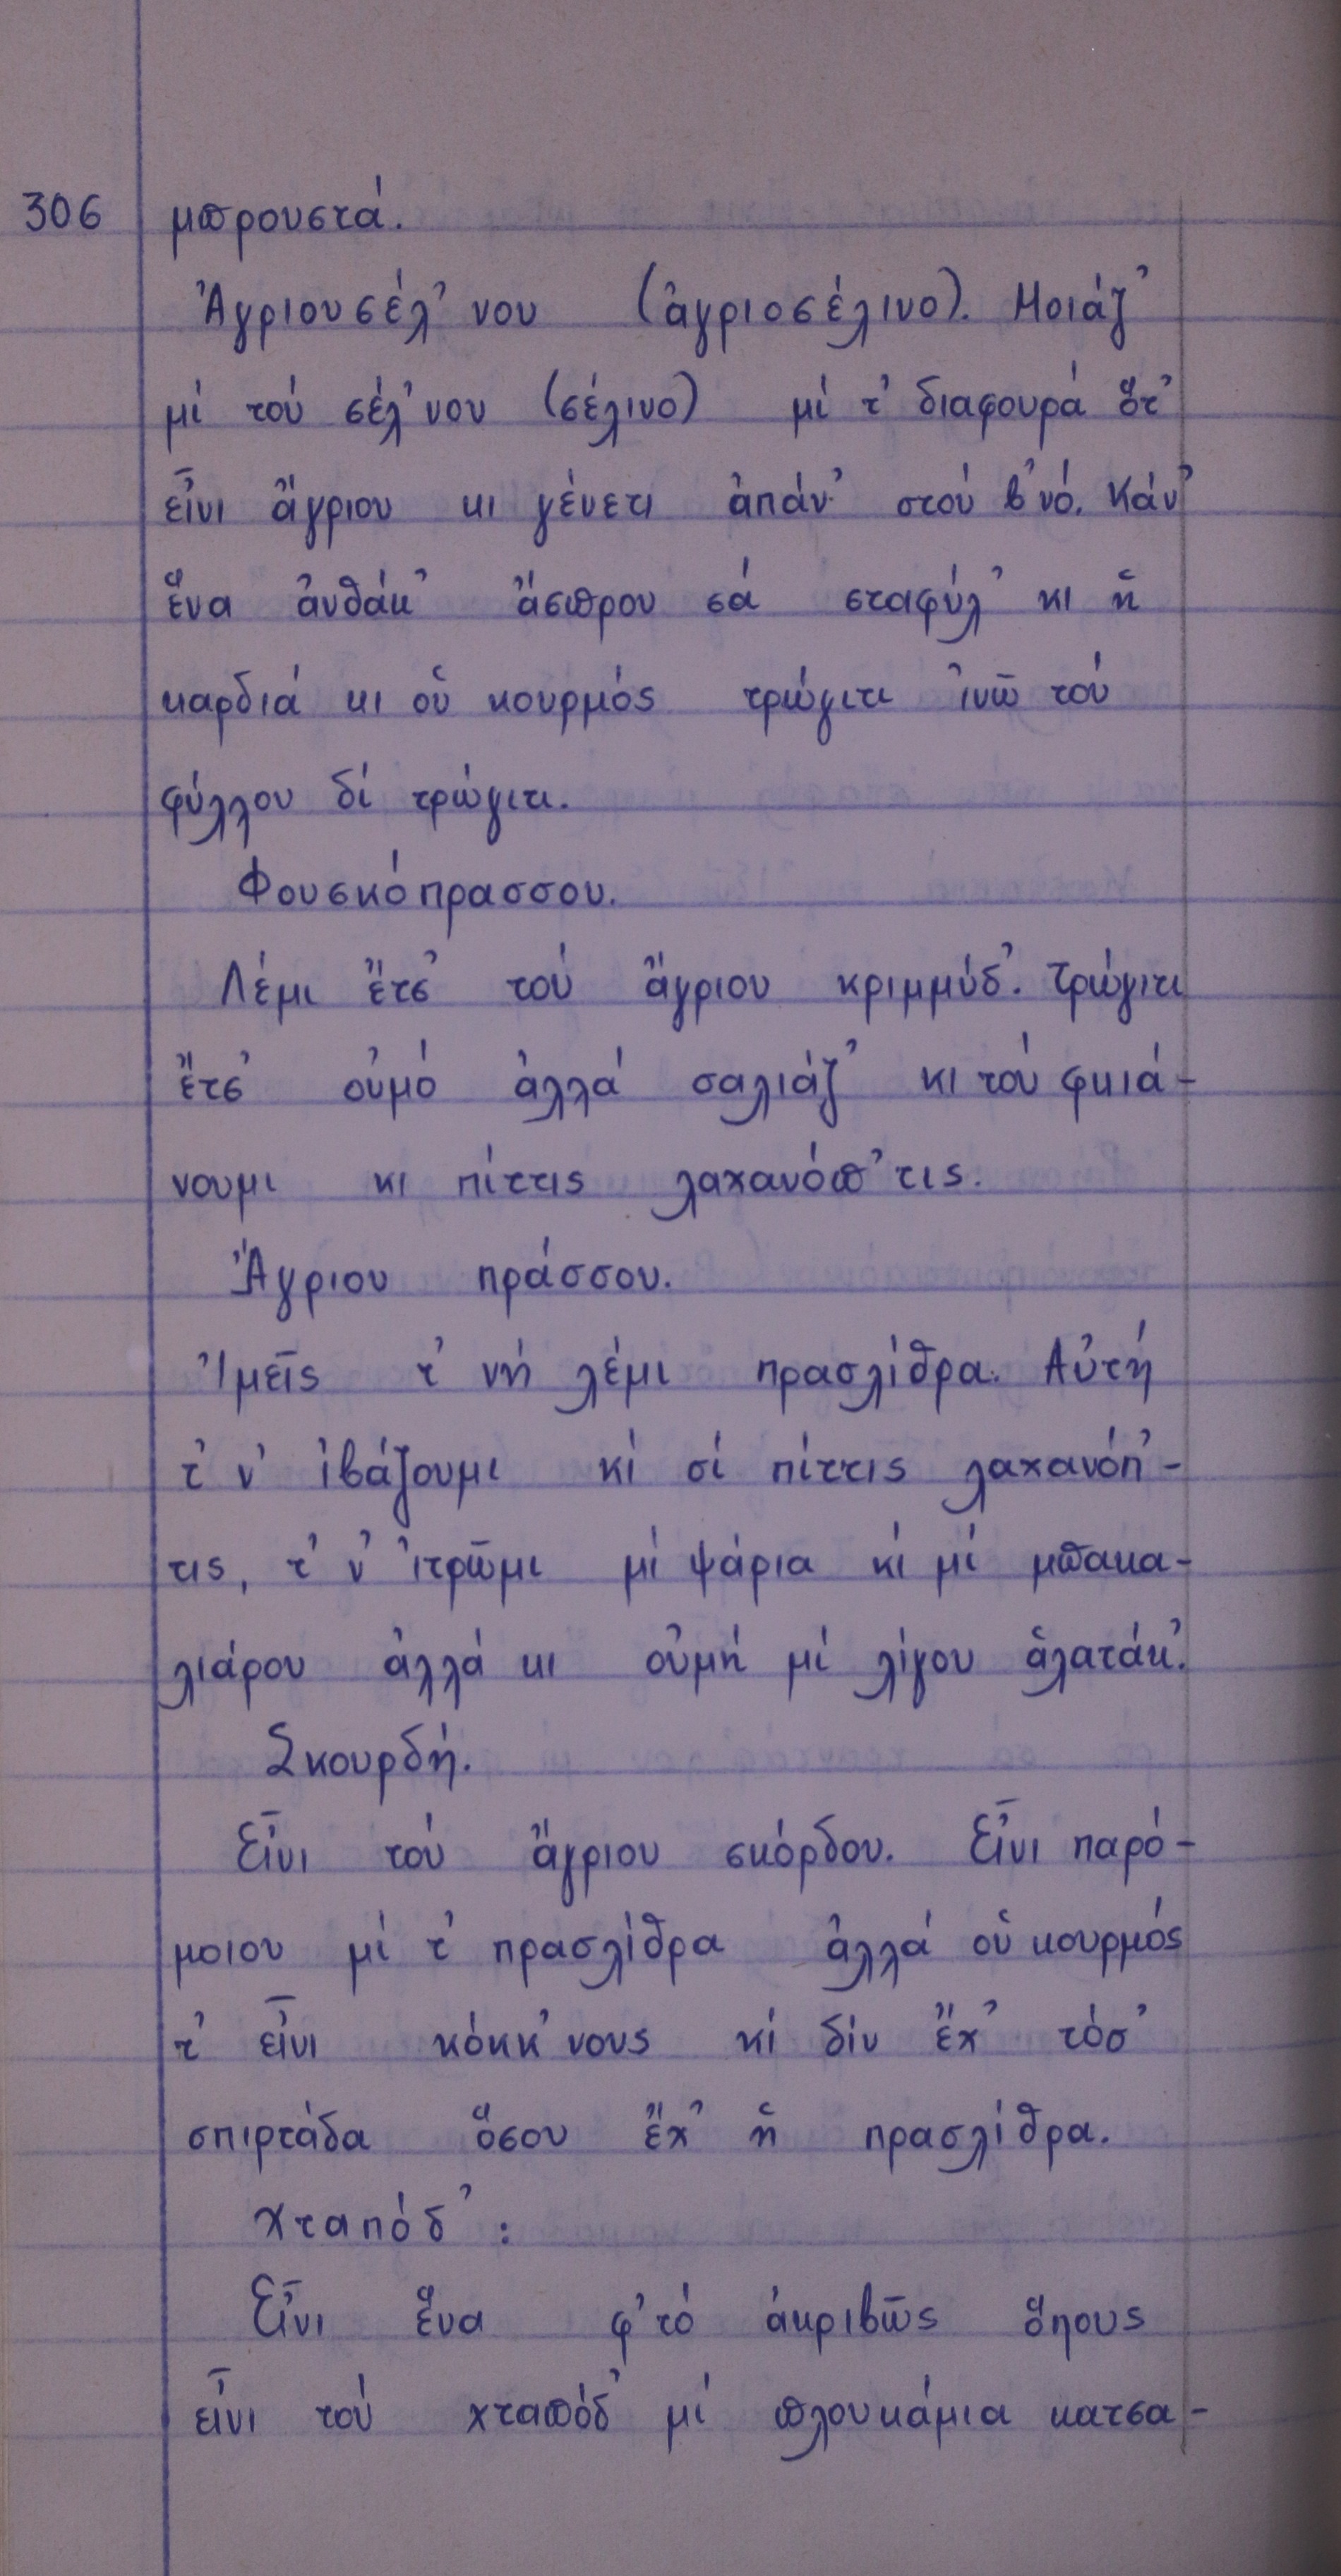 306 μπρουστά.
Ἀγριουσέλ' νου (ἀγριοσέλινο). Μοιάζ'
μί τού σέλ'νου (σέλινο) μί τ' διαφουρά ὅτ'
εἶνι ἄγριου κι γένετι ἀπάν' στού β'νό. Κάν'
ἕνα ἀνθάκ' ἄσπρου σά σταφύλ' κι ἡ
καρδιά κι οὑ κουρμός τρώγιτι ἰνῶ τού
φύλλου δί τρώγιτι.
Φουσκόπρασσου.
Λέμι ἔτσ' τού ἄγριου κριμμύδ'. Τρώγιτι
ἔτσ' οὐμό ἀλλά σαλιάζ' κι τού φκιά-
νουμι κι πίττις λαχανόπ'τις.
Ἄγριου πράσσου.
Ἰμεῖς τ' νή λέμι πρασλίθρα. Αὐτή
τ' ν' ἰβάζουμι κί σί πίττις λαχανόπ'-
τις, τ' ν' ἰτρῶμι μί ψάρια κί μί μπακα-
λιάρου ἀλλά κι οὐμή μί λίγου ἁλατάκ'.
Σκουρδή.
Εἶνι τού ἄγριου σκόρδου. Εἶνι παρό-
μοιου μί τ' πρασλίθρα ἀλλά οὑ κουρμός
τ' εἶνι κόκκ'νους κί δίν ἔχ' τόσ'
σπιρτάδα ὅσου ἔχ' ἡ πρασλίθρα.
Χταπόδ' :
Εἶνι ἕνα φ'τό ἀκριβῶς ὅπους
εἶνι τού χταπόδ' μί πλουκάμια κατσα-